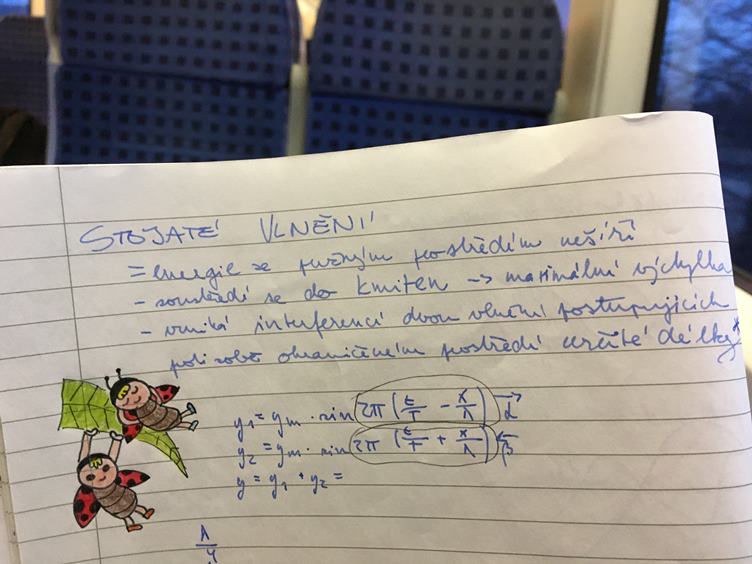 STOJATÉ VLNĚNÍ
= energie se pružným prostředím nešíří
- soustředí se do kmiten -> maximální výchylka
- vzniká interferencí dvou vlnění postupujících
proti sobě ohraničeném prostředí určité délky
y₁ = yₘ · sin 2π (t/T - x/λ) α
y₂ = yₘ · sin 2π (t/T + x/λ) β
y = y₁ + y₂ =
λ/4